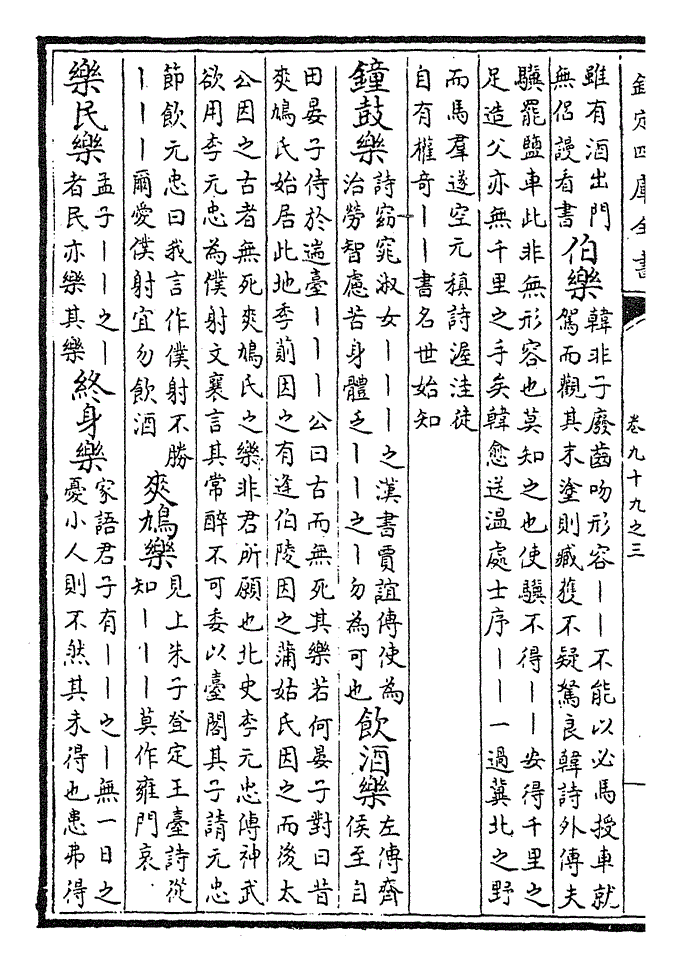 欽定四庫全書
卷九十九之三
雖有酒出門
無侶謾看書
伯樂
韓非子廢齒吻形容丨丨不能以必馬授車就
駕而觀其末塗則臧獲不疑駑良韓詩外傳夫
驥罷鹽車此非無形容也莫知之也使驥不得丨丨安得千里之
足造父亦無千里之手矣韓愈送溫處士序丨丨一過冀北之野
而馬羣遂空元稹詩渥洼徒
自有權奇丨丨書名世始知
鐘鼓樂
詩窈窕淑女丨丨丨之漢書賈誼傳使為
治勞智慮苦身體乏丨丨之丨勿為可也
飲酒樂
左傳齊
侯至自
田晏子侍於遄臺丨丨丨公曰古而無死其樂若何晏子對曰昔
爽鳩氏始居此地季萴因之有逢伯陵因之蒲姑氏因之而後太
公因之古者無死爽鳩氏之樂非君所願也北史李元忠傳神武
欲用李元忠為僕射文襄言其常醉不可委以臺閣其子請元忠
節飲元忠曰我言作僕射不勝
丨丨丨爾愛僕射宜勿飲酒
爽鳩樂
見上朱子登定王臺詩從
知丨丨丨莫作雍門哀
樂民樂
孟子丨丨之丨
者民亦樂其樂
終身樂
家語君子有丨丨之丨無一日之
憂小人則不然其未得也患弗得